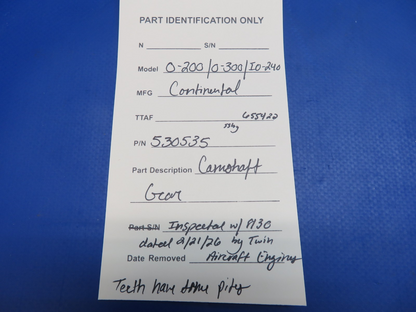 PART IDENTIFICATION ONLY
N S/N
Model O-200/O-300/IO-240
MFG Continental
TTAF 655422
assy
P/N 530535
Part Description Camshaft
Gear
Part S/N Inspected w/ 8130
dated 2/21/26 by Twin
Date Removed Aircraft Engines
Teeth have some pits